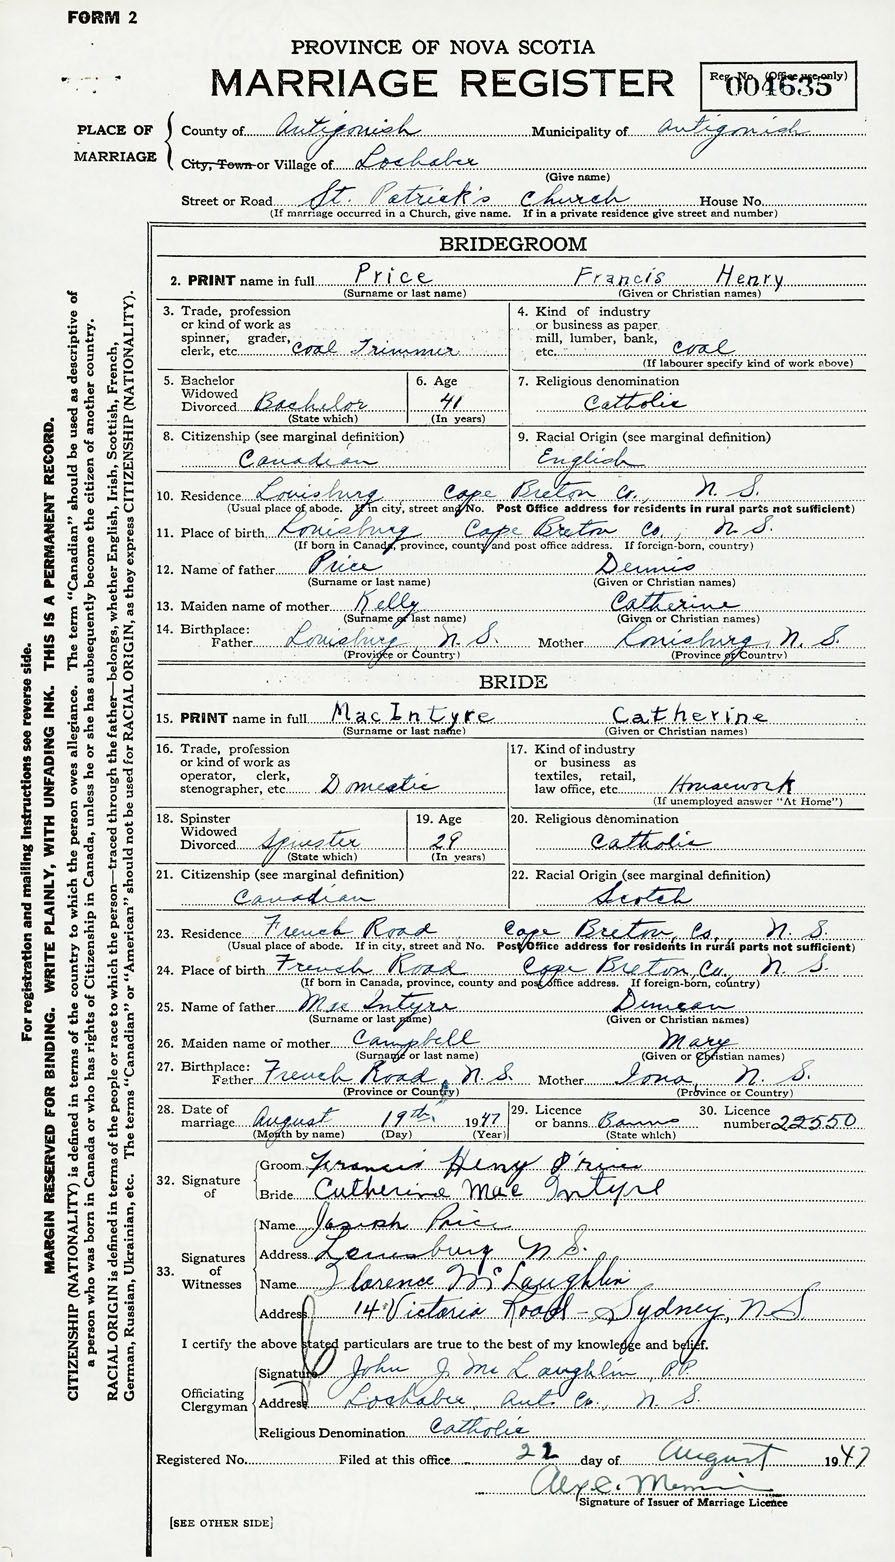 FORM 2
PROVINCE OF NOVA SCOTIA
MARRIAGE REGISTER
Reg. No. (Office use only)
004635
PLACE OF MARRIAGE
County of Antigonish Municipality of Antigonish
City, Town or Village of Lochaber
(Give name)
Street or Road St. Patrick's Church House No.
(If marriage occurred in a Church, give name. If in a private residence give street and number)
BRIDEGROOM
2. PRINT name in full Price Francis Henry
(Surname or last name) (Given or Christian names)
3. Trade, profession or kind of work as spinner, grader, clerk, etc. Coal Trimmer
4. Kind of industry or business as paper mill, lumber, bank, etc. coal
(If labourer specify kind of work above)
5. Bachelor Widowed Divorced Bachelor
(State which)
6. Age 41
(In years)
7. Religious denomination
Catholic
8. Citizenship (see marginal definition)
Canadian
9. Racial Origin (see marginal definition)
English
10. Residence Louisburg Cape Breton Co., N. S.
(Usual place of abode. If in city, street and No. Post Office address for residents in rural parts not sufficient)
11. Place of birth Louisburg Cape Breton Co., N. S.
(If born in Canada, province, county and post office address. If foreign-born, country)
12. Name of father Price Dennis
(Surname or last name) (Given or Christian names)
13. Maiden name of mother Kelly Catherine
(Surname or last name) (Given or Christian names)
14. Birthplace: Father Louisburg N. S. Mother Louisburg, N. S.
(Province or Country) (Province or Country)
BRIDE
15. PRINT name in full MacIntyre Catherine
(Surname or last name) (Given or Christian names)
16. Trade, profession or kind of work as operator, clerk, stenographer, etc. Domestic
17. Kind of industry or business as textiles, retail, law office, etc. Housework
(If unemployed answer "At Home")
18. Spinster Widowed Divorced Spinster
(State which)
19. Age 29
(In years)
20. Religious denomination
Catholic
21. Citizenship (see marginal definition)
Canadian
22. Racial Origin (see marginal definition)
Scotch
23. Residence French Road Cape Breton, Co., N. S.
(Usual place of abode. If in city, street and No. Post Office address for residents in rural parts not sufficient)
24. Place of birth French Road Cape Breton, Co., N. S.
(If born in Canada, province, county and post office address. If foreign-born, country)
25. Name of father Mac Intyre Duncan
(Surname or last name) (Given or Christian names)
26. Maiden name of mother Campbell Mary
(Surname or last name) (Given or Christian names)
27. Birthplace: Father French Road, N. S. Mother Iona, N. S.
(Province or Country) (Province or Country)
28. Date of marriage August 19th, 1947
(Month by name) (Day) (Year)
29. Licence or banns Banns
(State which)
30. Licence number 22550
32. Signature of
Groom Francis Henry Price
Bride Catherine Mac Intyre
33. Signatures of Witnesses
Name Joseph Price
Address Louisburg N. S.
Name Florence McLaughlin
Address 14 Victoria Road - Sydney, N.S.
I certify the above stated particulars are true to the best of my knowledge and belief.
Officiating Clergyman
Signature John J. McLaughlin, P.P.
Address Lochaber, Ant. Co., N. S.
Religious Denomination Catholic
Registered No. Filed at this office 22 day of August 1947
Signature of Issuer of Marriage Licence
[SEE OTHER SIDE]
For registration and mailing instructions see reverse side.
MARGIN RESERVED FOR BINDING. WRITE PLAINLY, WITH UNFADING INK. THIS IS A PERMANENT RECORD.
CITIZENSHIP (NATIONALITY) is defined in terms of the country to which the person owes allegiance. The term "Canadian" should be used as descriptive of
a person who was born in Canada or who has rights of Citizenship in Canada, unless he or she has subsequently become the citizen of another country.
RACIAL ORIGIN is defined in terms of the people or race to which the person—traced through the father—belongs, whether English, Irish, Scottish, French,
German, Russian, Ukrainian, etc. The terms "Canadian" or "American" should not be used for RACIAL ORIGIN, as they express CITIZENSHIP (NATIONALITY).